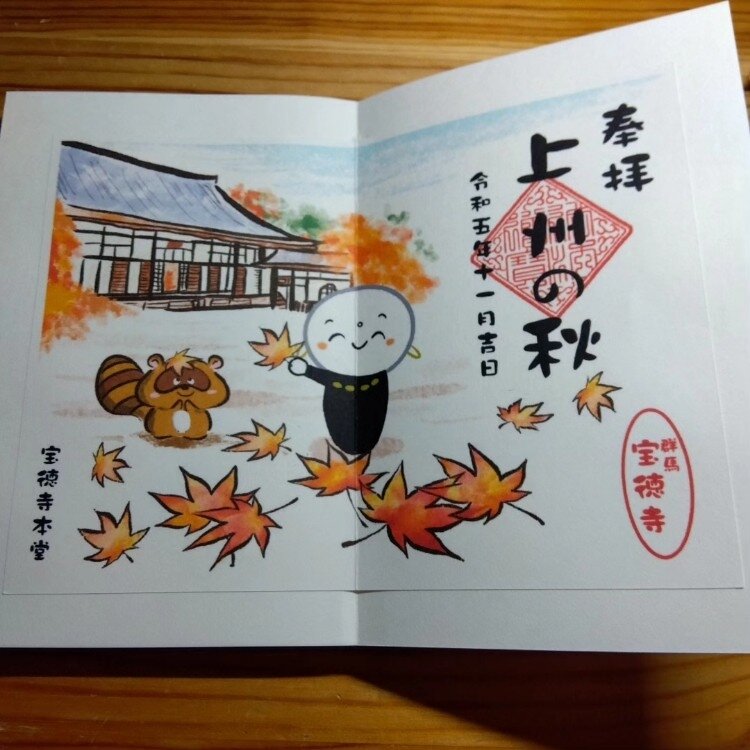 奉拝
上州の秋
令和五年十一月吉日
群馬
宝徳寺
宝徳寺本堂